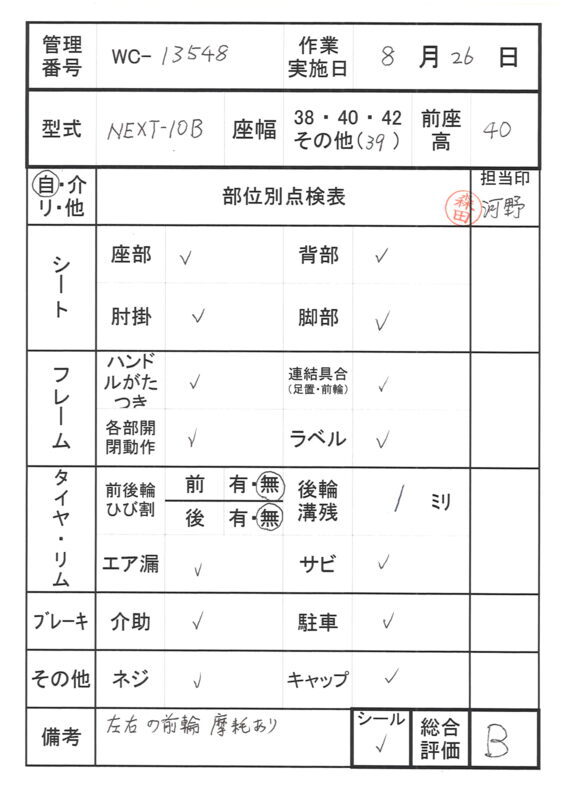 管理番号 WC-13548 作業実施日 8月26日
型式 NEXT-10B 座幅 38・40・42 その他(39) 前座高 40
自・介 リ・他 部位別点検表 森田 担当印 河野
シート 座部 ✓ 背部 ✓
肘掛 ✓ 脚部 ✓
フレーム ハンドルがたつき ✓ 連結具合 (足置・前輪) ✓
各部開閉動作 ✓ ラベル ✓
タイヤ・リム 前後輪ひび割 前 有・無 後輪溝残 1 ミリ
後 有・無
エア漏 ✓ サビ ✓
ブレーキ 介助 ✓ 駐車 ✓
その他 ネジ ✓ キャップ ✓
備考 左右の前輪 摩耗あり シール ✓ 総合評価 B